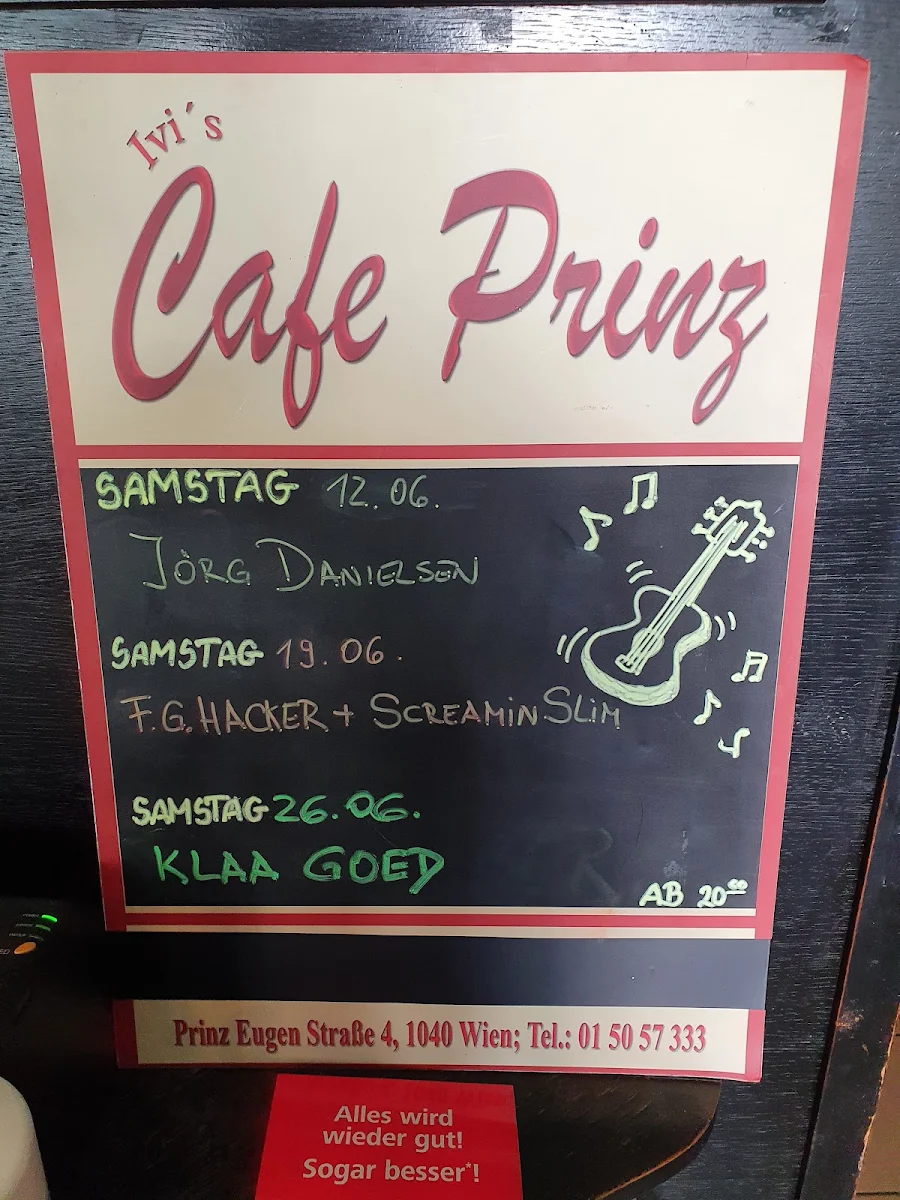 Ivi´s
Cafe Prinz
SAMSTAG 12.06.
JÖRG DANIELSEN
SAMSTAG 19.06.
F.G. HACKER + SCREAMIN SLIM
SAMSTAG 26.06.
KLAA GOED
AB 20⁰⁰
Prinz Eugen Straße 4, 1040 Wien; Tel.: 01 50 57 333
Alles wird
wieder gut!
Sogar besser*!